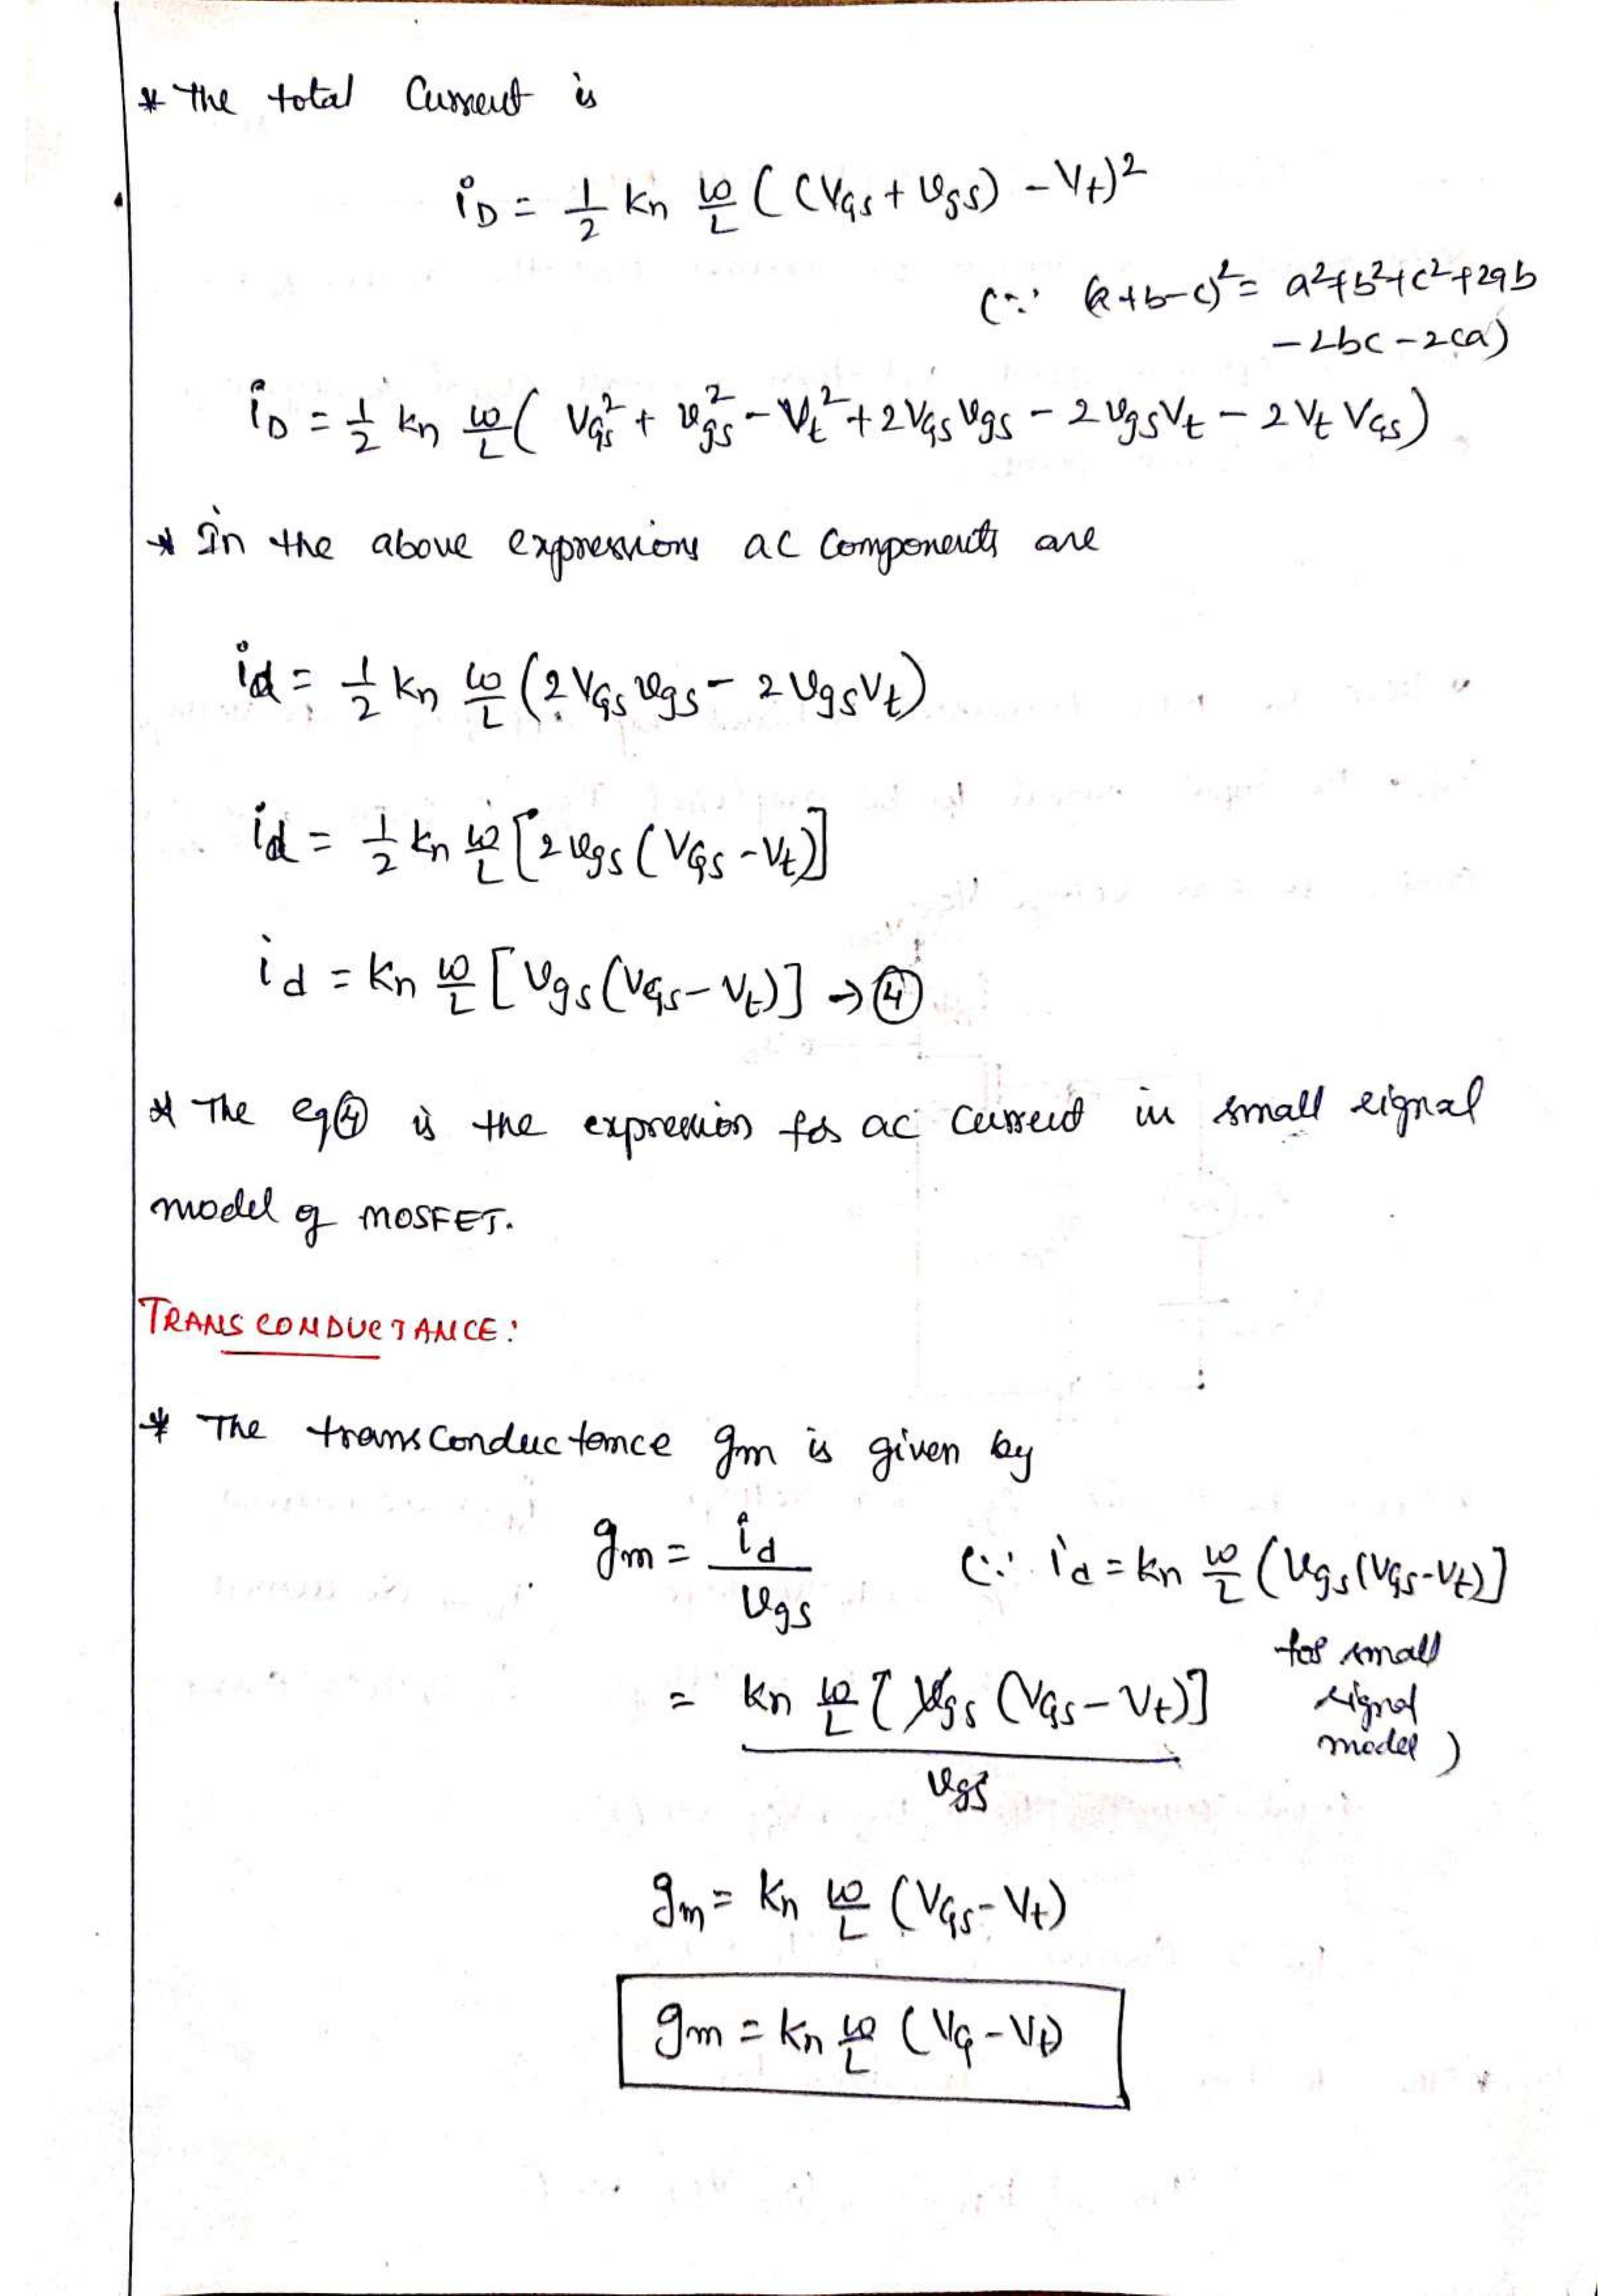 * The total Current is
iD = 1/2 kn w/L ((VGS + vgs) - Vt)²
(∵ (a+b-c)² = a²+b²+c²+2ab
-2bc-2ca)
iD = 1/2 kn w/L (VGS² + vgs² - Vt² + 2VGS vgs - 2vgsVt - 2Vt VGS)
* In the above expressions ac Components are
id = 1/2 kn w/L (2VGS vgs - 2vgsVt)
id = 1/2 kn w/L [2vgs (VGS - Vt)]
id = kn w/L [vgs (VGS - Vt)] → ④
* The eq④ is the expression for ac current in small signal
model of MOSFET.
TRANSCONDUCTANCE:
* The transconductance gm is given by
gm = id/vgs (∵ id = kn w/L (vgs (VGS-Vt)]
for small
signal
model)
= kn w/L [vgs (VGS - Vt)] / vgs
gm = kn w/L (VGS - Vt)
gm = kn w/L (VG - Vt)